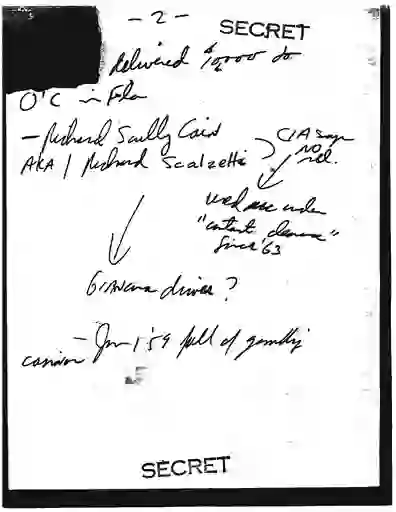 - 2 -
SECRET
Delivered $10,000 to
O'C in Fla
- Richard Scully Cain
CIA says
no
rel.
AKA / Richard Scalzetti
used under
"contact clearance"
since '63
Giancana driver?
- Jan 1 '59 full of gambling
casinos
SECRET